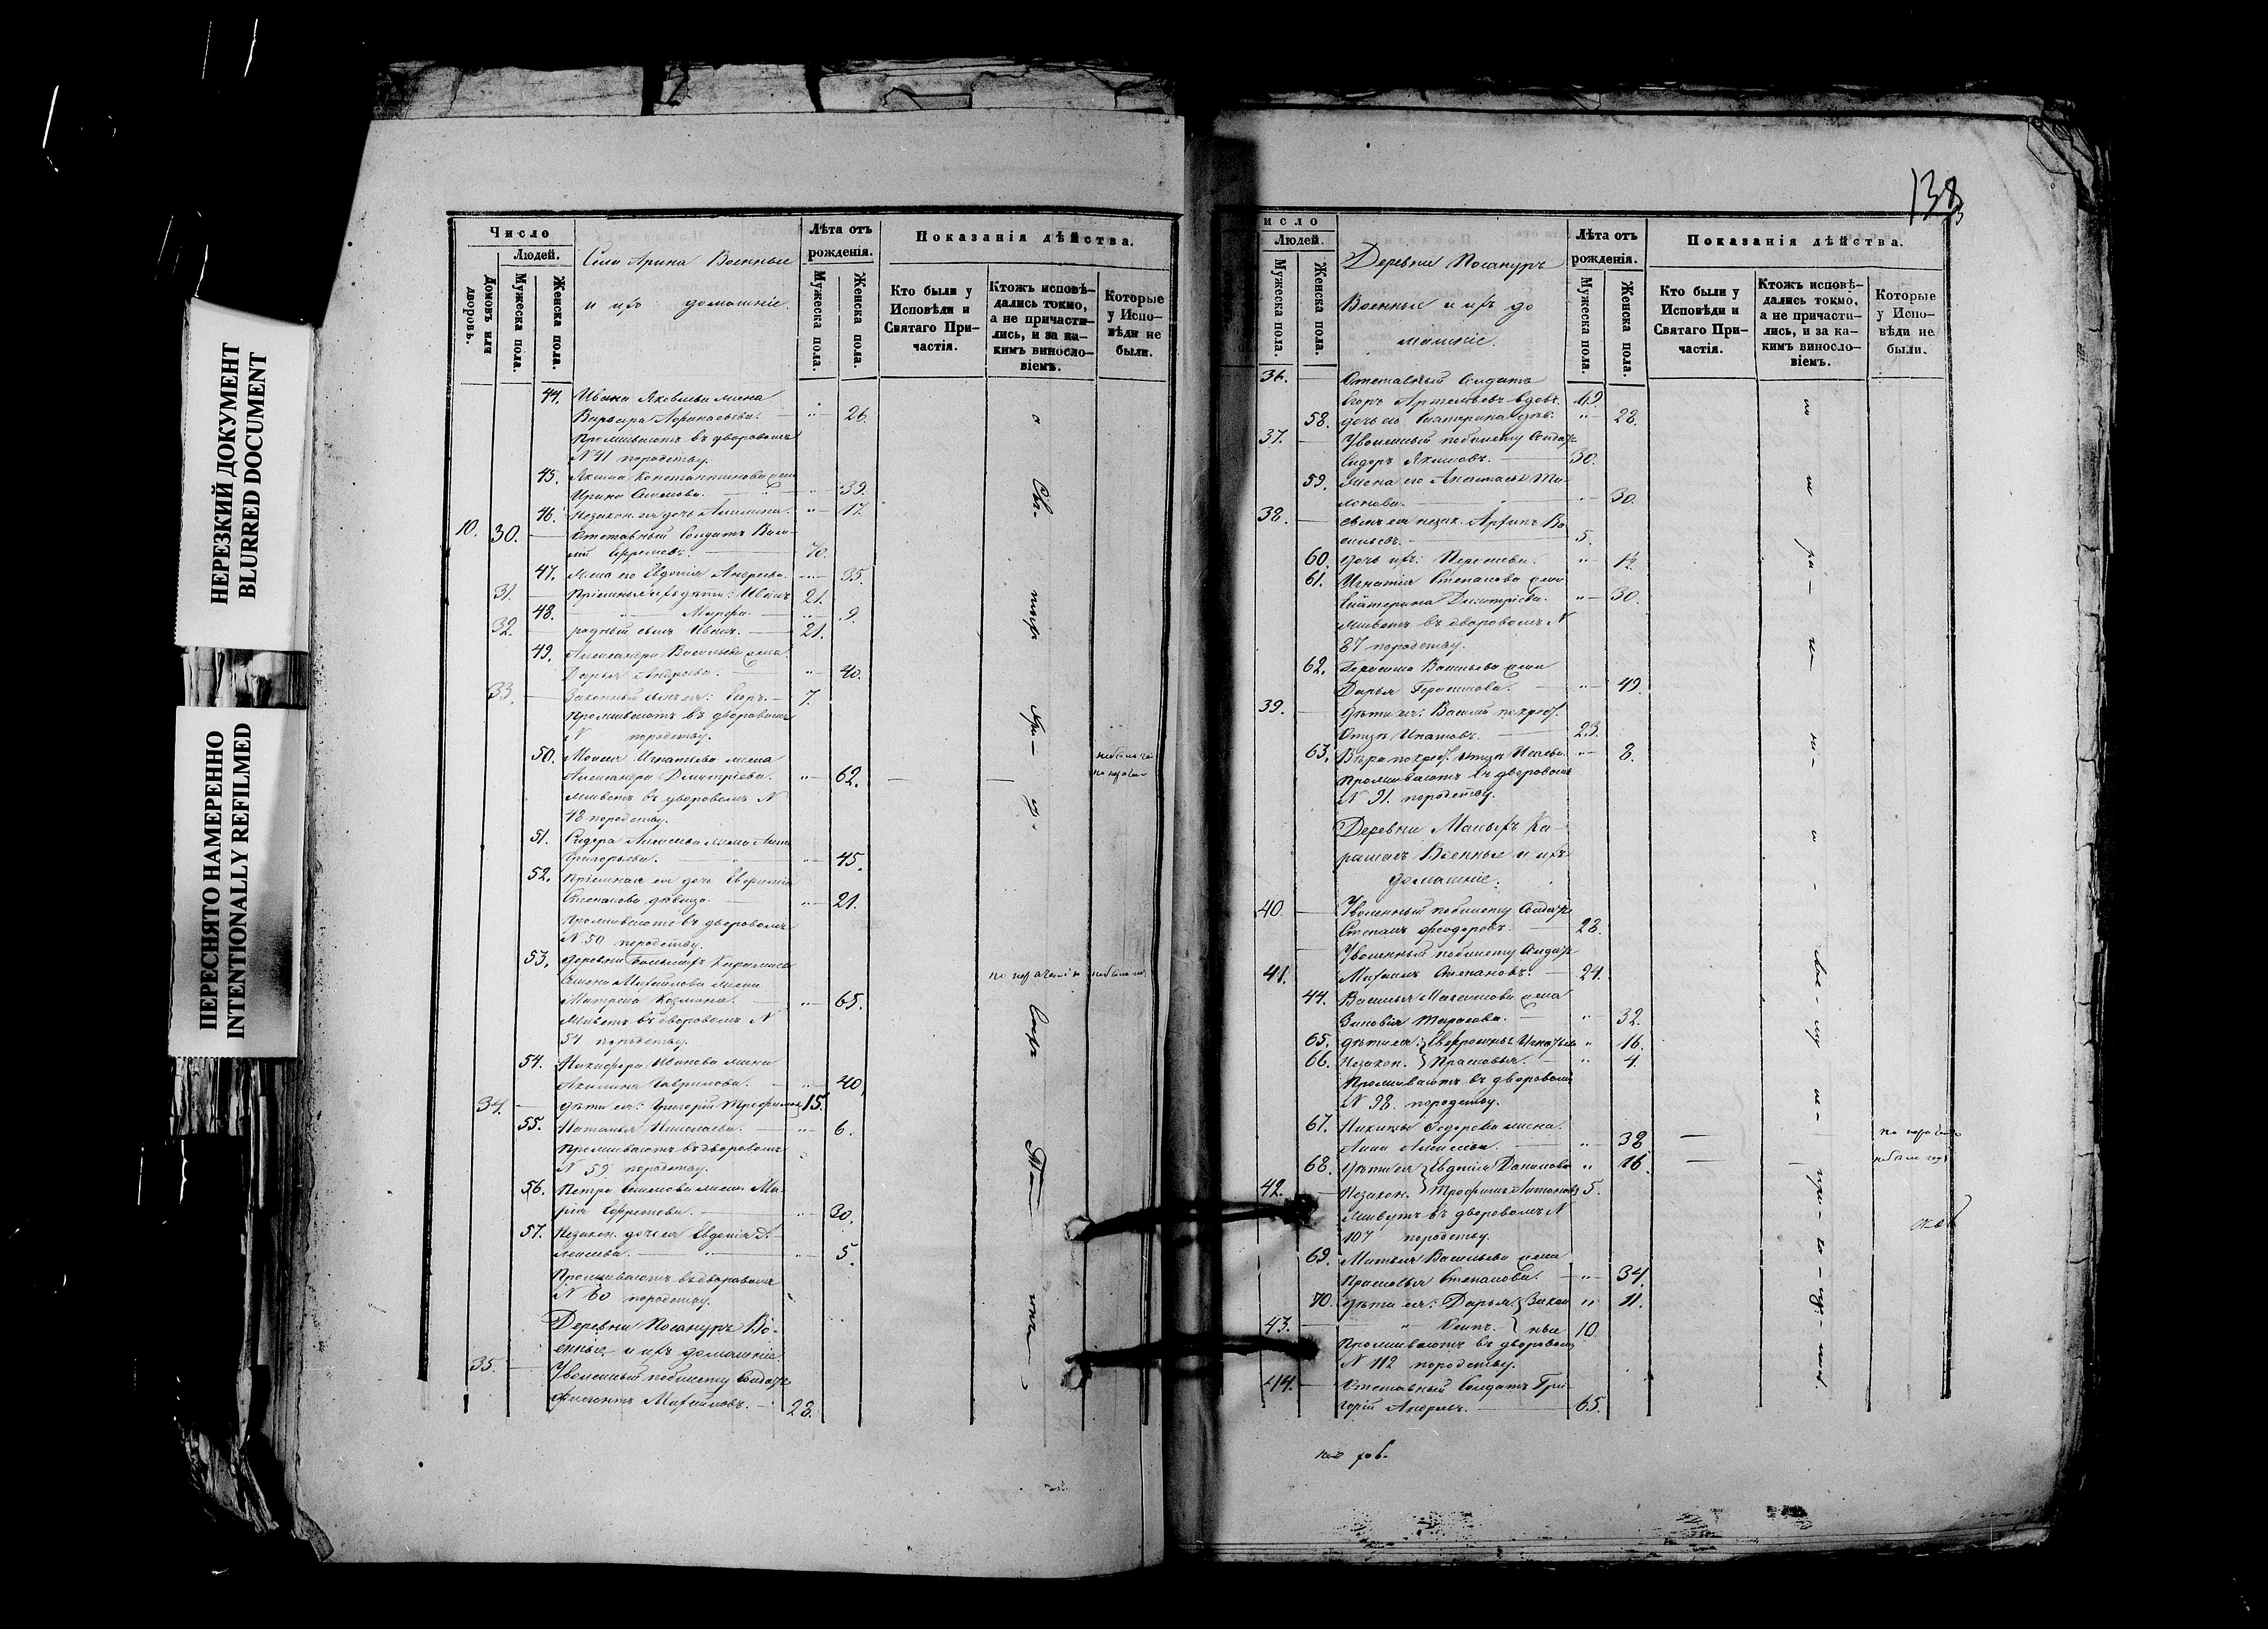 НЕРЕЗКИЙ ДОКУМЕНТ
BLURRED DOCUMENT
ПЕРЕСНЯТО НАМЕРЕННО
INTENTIONALLY REFILMED
Число
Людей.
Домовъ или дворовъ.
Мужеска пола.
Женска пола.
Село Арина Военные
и ихъ домашніе.
Лѣта отъ рожденія.
Мужеска пола.
Женска пола.
Показанія дѣйства.
Кто были у Исповѣди и Святаго Причастія.
Ктожъ исповѣдались токмо, а не причастились, и за какимъ винословіемъ.
Которые у Исповѣди не были.
44. Ивана Яковлева жена
Варвара Афанасьева. 26.
Проживаютъ въ дворовомъ
N 41 породству.
45. Якима Константинова жена
Ирина Семенова. 39.
46. Незакон. ея дочь Акилина. 17.
10. 30. Отставный Солдатъ Васи-
лій Ефремовъ. 70.
47. Жена его Евдокія Андреева. 35.
31. Пріемные ихъ дѣти: Иванъ 21.
48. Марфа. 9.
32. родный сынъ Иванъ. 21.
49. Александра Васильева жена
Дарья Андреева. 40.
33. Законный сынъ ея: Егоръ. 7.
Проживаютъ въ дворовомъ
N породству.
50. Моисея Игнатьева жена
Александра Дмитріева. 62.
живетъ въ дворовомъ N
48 породству.
51. Сидора Алексеева жена Анна
Григорьева. 45.
52. Пріемная ея дочь Евфимія
Степанова дѣвица. 21.
Проживаютъ въ дворовомъ
N 50 породству.
53. деревни
Семена Михайлова жена
Матрена Козмина. 65.
Живетъ въ дворовомъ N
54 породству.
54. Никифора Иванова жена
Акилина Гаврилова. 40
34. дѣти ея: Григорій Трофимовъ 15.
55. Наталья Николаева. 6.
Проживаютъ въ дворовомъ
N 59 породству.
56. Петра Семенова жена Ма-
рія Ефремова. 30.
57. Незакон. дочь ея Евдокія А-
лексеева. 5.
Проживаютъ въ дворовомъ
N 60 породству.
Деревни Посануръ Во-
енные и ихъ домашніе.
35. Уволенный побилету Солдатъ
Филиппъ Михайловъ. 28.
138
исло
Людей.
Мужеска пола.
Женска пола.
Деревни Посануръ
Военные и ихъ до
машніе.
Лѣта отъ рожденія.
Мужеска пола.
Женска пола.
Показанія дѣйства.
Кто были у Исповѣди и Святаго Причастія.
Ктожъ исповѣдались токмо, а не причастились, и за какимъ винословіемъ.
Которые у Исповѣди не были.
36. Отставный Солдатъ
Егоръ Артемьевъ вдов. 49
58. дочь его Екатерина 28.
37. Уволенный побилету Солдатъ
Сидоръ Якимовъ. 30.
59. Жена его Анастасья Ти-
мофеева. 30.
38. сынъ ея незак. Архипъ Ва-
сильевъ. 5.
60. дочь ихъ: 1½
61. Игнатія Степанова жена
Екатерина Дмитріева. 30.
живетъ въ дворовомъ N
87 породству.
62. Герасима Васильева жена
Дарья Герасимова. 49.
39. дѣти ея: Василій по крест.
Отцу Игнатовъ. 23.
63. Вѣра по крест. отцу 8.
Проживаютъ въ дворовомъ
N 91. породству.
Деревни Малыхъ Ка-
рашаъ Военные и ихъ
домашніе:
40. Уволенный побилету Солдатъ
Степанъ Феодоровъ. 28.
Уволенный побилету Солдатъ
41. Михаилъ Степановъ. 24.
44. Василья Максимова жена
Зиновія Тарасова. 32.
65. дѣти ея: Евфросинья Игнатьева 16.
66. Незакон. Прасковья. 4.
Проживаютъ въ дворовомъ
N 98. породству.
67. Никиты Федорова жена
Анна Алексеева. 38
68. дѣти ея Евдокія Данилова 16.
42. Незакон. Трофимъ Антоновъ 5.
Живутъ въ дворовомъ N
107 породству.
69. Матвея Васильева жена
Прасковья Степанова. 34.
70. дѣти ея: Дарья. Закон 11.
43. Осипъ. ные 10.
Проживаютъ въ дворовомъ
N 112 породству.
44. Отставный Солдатъ Гри-
горій Андреевъ. 65.